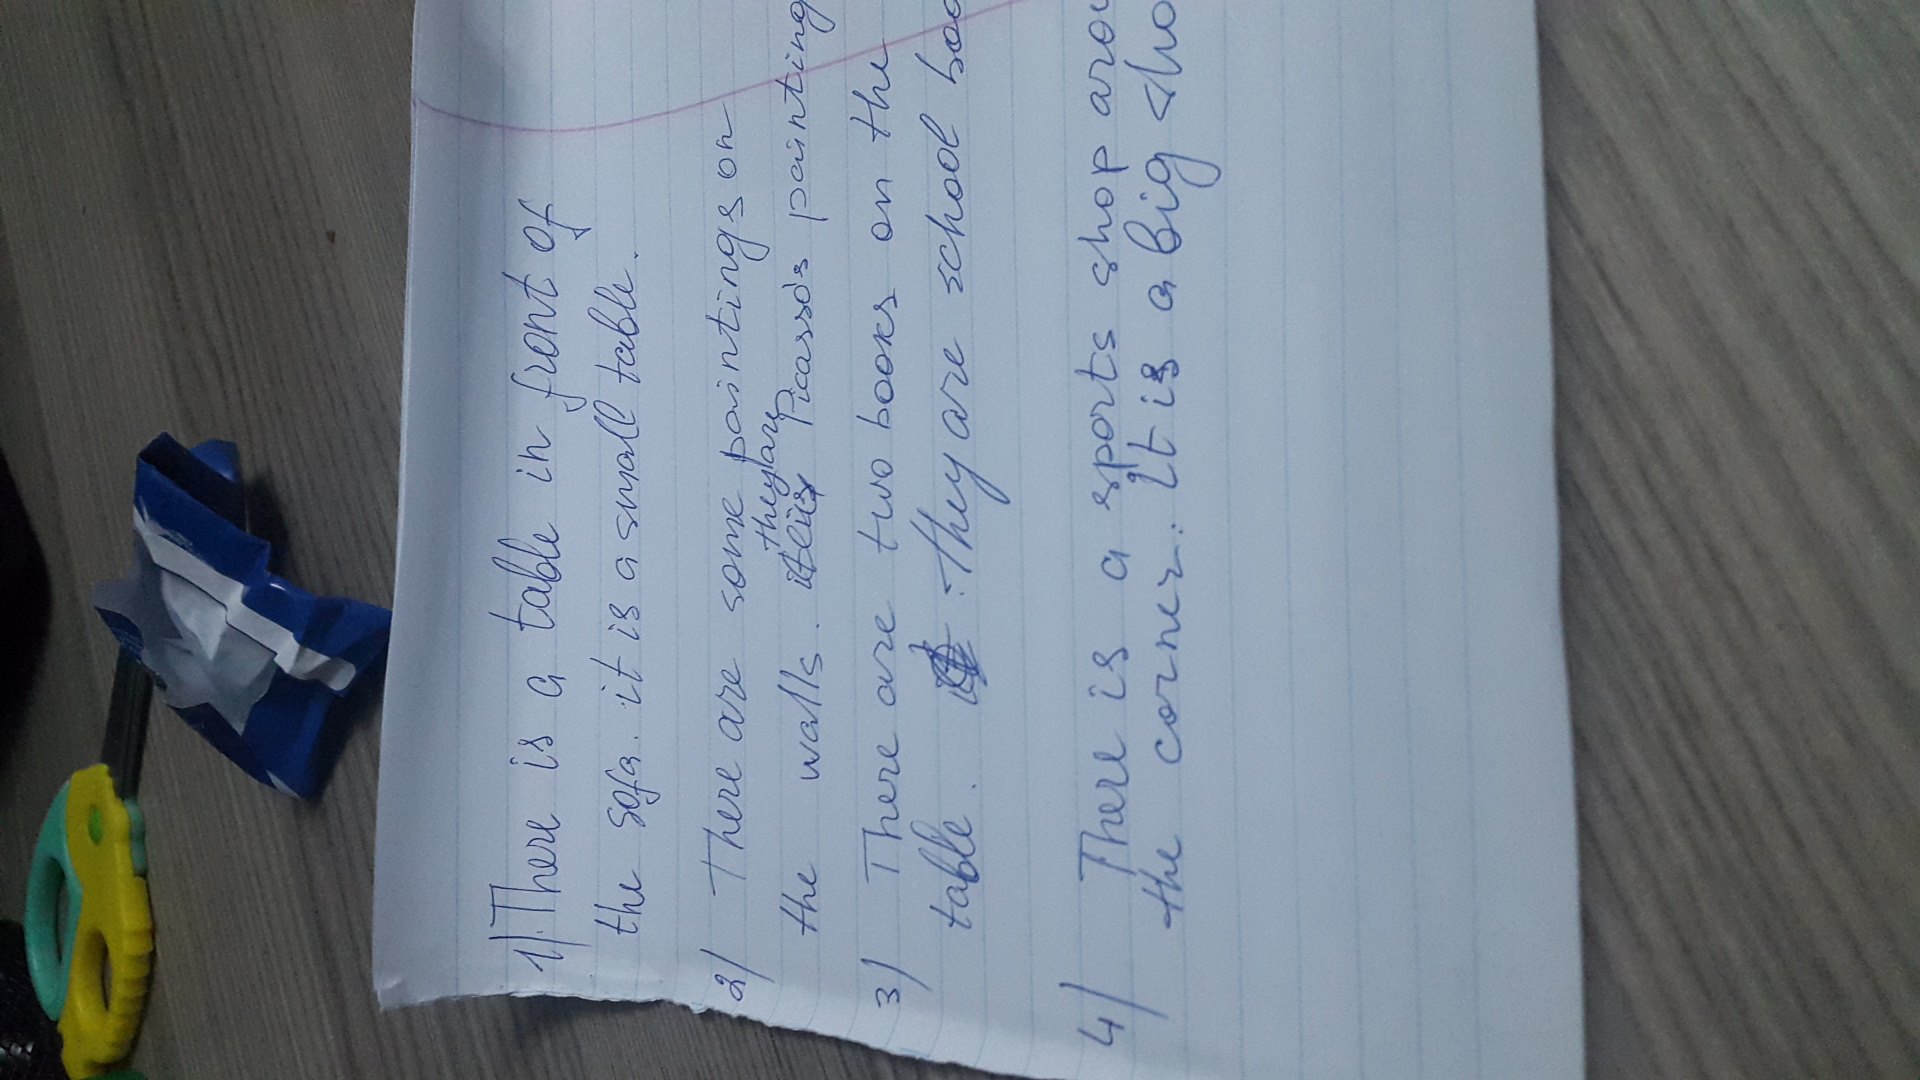 1) There is a table in front of
the sofa. it is a small table.
2) There are some paintings on
they are
the walls. Picasso's painting
3) There are two books on the
table. They are school
4) There is a sports shop
the corner. It is a big